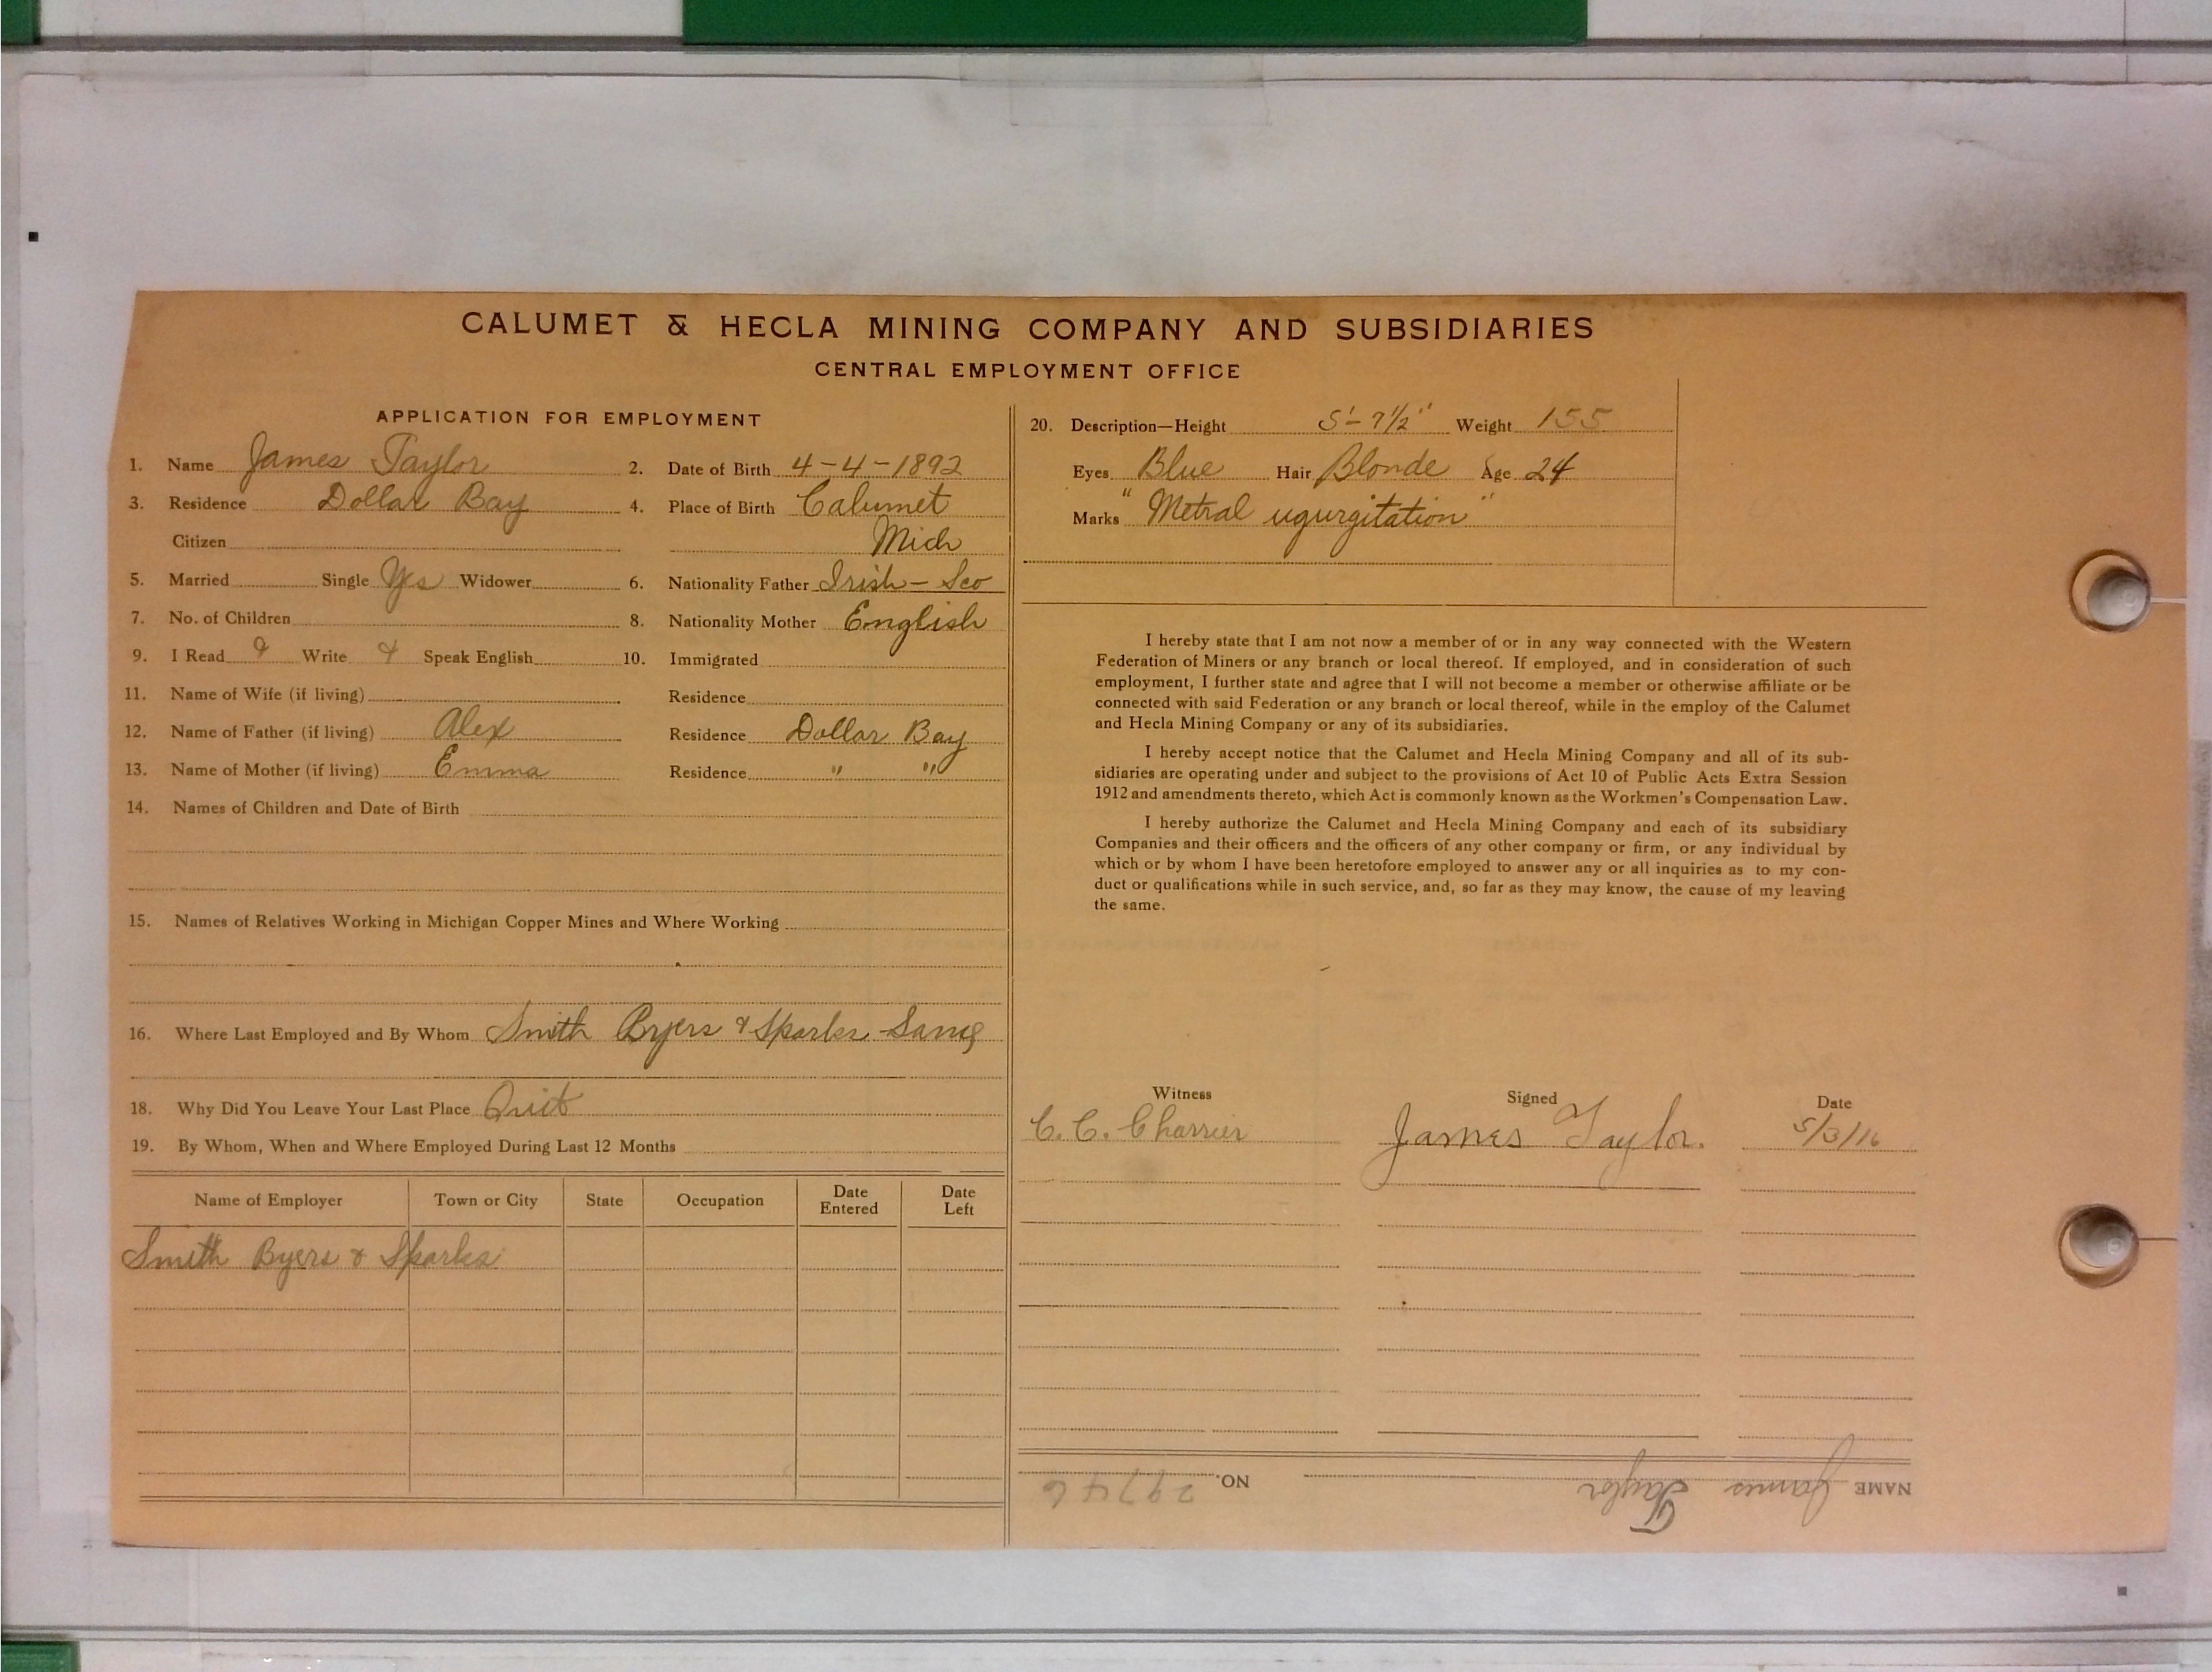 CALUMET & HECLA MINING COMPANY AND SUBSIDIARIES
CENTRAL EMPLOYMENT OFFICE
APPLICATION FOR EMPLOYMENT
1. Name James Taylor 2. Date of Birth 4-4-1892
3. Residence Dollar Bay 4. Place of Birth Calumet
Citizen Mich
5. Married Single Yes Widower 6. Nationality Father Irish - Sco
7. No. of Children 8. Nationality Mother English
9. I Read Write Speak English 10. Immigrated
11. Name of Wife (if living) Residence
12. Name of Father (if living) Alex Residence Dollar Bay
13. Name of Mother (if living) Emma Residence " "
14. Names of Children and Date of Birth
15. Names of Relatives Working in Michigan Copper Mines and Where Working
16. Where Last Employed and By Whom Smith Byers & Sparks - Same
18. Why Did You Leave Your Last Place Quit
19. By Whom, When and Where Employed During Last 12 Months
Name of Employer Town or City State Occupation Date Entered Date Left
Smith Byers & Sparks
20. Description—Height 5'-7½" Weight 155
Eyes Blue Hair Blonde Age 24
Marks "Metral ugurgitation"
I hereby state that I am not now a member of or in any way connected with the Western
Federation of Miners or any branch or local thereof. If employed, and in consideration of such
employment, I further state and agree that I will not become a member or otherwise affiliate or be
connected with said Federation or any branch or local thereof, while in the employ of the Calumet
and Hecla Mining Company or any of its subsidiaries.
I hereby accept notice that the Calumet and Hecla Mining Company and all of its sub-
sidiaries are operating under and subject to the provisions of Act 10 of Public Acts Extra Session
1912 and amendments thereto, which Act is commonly known as the Workmen's Compensation Law.
I hereby authorize the Calumet and Hecla Mining Company and each of its subsidiary
Companies and their officers and the officers of any other company or firm, or any individual by
which or by whom I have been heretofore employed to answer any or all inquiries as to my con-
duct or qualifications while in such service, and, so far as they may know, the cause of my leaving
the same.
Witness Signed Date
C. C. Charrier James Taylor. 5/3/16
NAME James Taylor NO. 29746